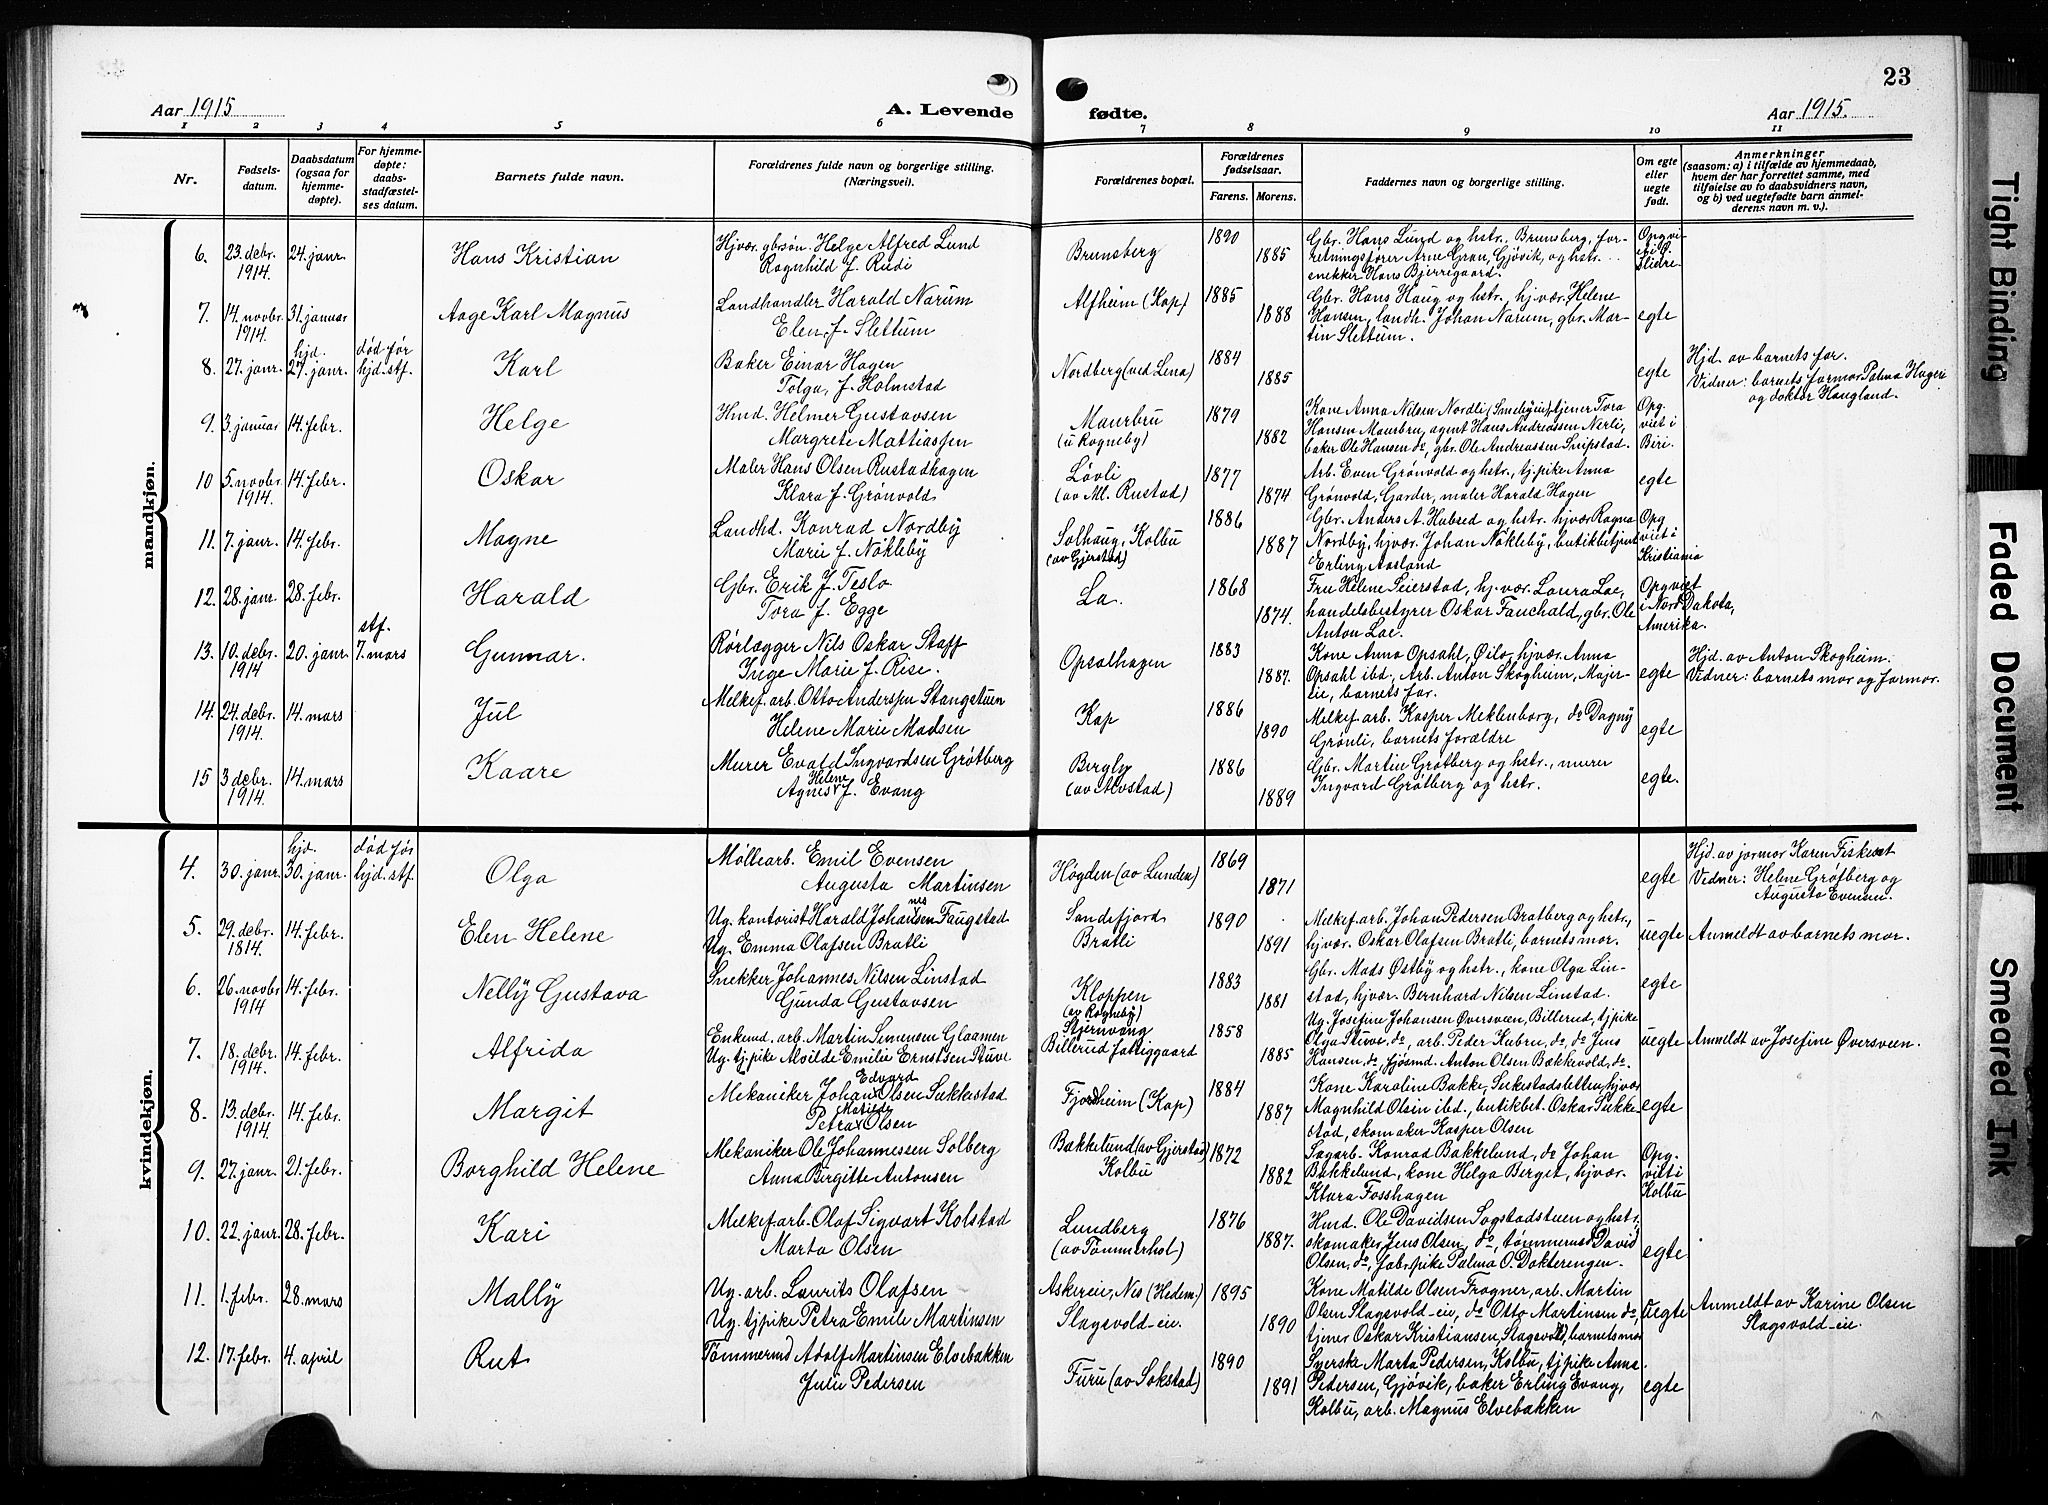 23
Aar 1915
A. Levende
fødte.
Aar 1915.
1 2 3 4 5 6 7 8 9 10 11
Nr.
Fødsels-
datum.
Daabsdatum
(ogsaa for
hjemme-
døpte).
For hjemme-
døpte:
daabs-
stadfæstel-
ses datum.
Barnets fulde navn.
Forældrenes fulde navn og borgerlige stilling.
(Næringsvei).
Forældrenes bopæl.
Forældrenes
fødselsaar.
Farens. Morens.
Faddernes navn og borgerlige stilling.
Om egte
eller
uegte
født.
Anmerkninger
(saasom: a) i tilfælde av hjemmedaab,
hvem der har forrettet samme, med
tilføielse av to daabsvidners navn,
og b) ved uegtefødte barn anmel-
derens navn m. v.).
mandkjøn.
6. 23. debr. 1914. 24. janr. Hans Kristian
Hjvær. gbrsøn. Helge Alfred Lund
Ragnhild f. Rudi
Brunsberg 1890 1885
Gbr. Hans Lund og hstr., Brunsberg, for-
retningsfører Arne Gran, Gjøvik, og hstr.
snekker Hans Bjerregaard.
Slidre.
7. 14. novbr. 1914. 31. januar Aage Karl Magnus
Landhandler Harald Narum
Elen, f. Slettum
Alfheim (Kap) 1885 1888
Gbr. Hans Haug og hstr., hj.vær. Helene
Hansen, landh. Johan Narum, gbr. Mar-
tin Slettum.
egte
8. 27. janr. hjd. 27. janr. død før hjd. stf. Karl
Baker Einar Hagen
Tolga, f. Holmstad
Nordberg (ved Lena) 1884 1885
egte
Hjd. av barnets far.
Vidner: barnets farmor Palma Hagen
og doktor Haugland.
9. 3. januar 14. febr. Helge
Hmd. Helmer Gustavsen
Margrete Mattiassen
Maurbru
(u Rogneby)
1879 1882
Kone Anna Nilsen Nordli (Smebyeie), tjener Tora
Hansen Maurbru, agent Hans Andreassen Nerli,
baker Ole Hansen do, gbr. Ole Andreassen Snipstad.
Opg.
viet i
Biri.
10 5. novbr. 1914. 14. febr. Oskar
Maler Hans Olsen Rustadhagen
Klara f. Grønvold
Løvli
(av Ml. Rustad)
1877 1874
Arb. Even Grønvold og hstr., tj.pike Anna
Grønvold, Garder, maler Harald Hagen
egte
11. 7. janr. 14. febr. Magne
Landhd. Konrad Nordby
Marie f. Nøkleby
Solhaug, Kolbu
(av Gjerstad)
1886 1887
Gbr. Anders A. Hubsed og hstr. hjvær. Ragna
Nordby, hjvær. Johan Nøkleby, butikbetjent
Erling Aasland
Opg
viet i
Kristiania
12. 28. janr. 28. febr. Harald
Gbr. Erik J. Teslo
Tora f. Egge
La. 1868 1874.
Fru Helene Seierstad, hj.vær. Laura Lae,
handelsbestyrer Oskar Fauchald, gbr. Ole
Anton Lae.
Opg viet
i Nord Dakota,
Amerika.
13. 10. debr. 1914 20. janr. stf. 7. mars Gunnar.
Rørlægger Nils Oskar Staff
Inge Marie f. Rise.
Opsalhagen 1883 1887.
Kone Anna Opsahl, Øilo, hjvær. Anna
Opsahl ibd., Arb. Anton Skogheim, Majer-
eie, barnets far.
egte
Hjd. av Anton Skogheim.
Vidner: barnets mor og farmor.
14. 24. debr. 1914. 14. mars Jul
Melkef. arb. Otto Andersen Stangstuen
Helene Marie Madsen
Kap 1886 1890
Melkef. arb. Kasper Meklenborg, do Dagny
Grønli, barnets forældre
egte
15 3 debr. 1914. 14. mars Kaare
Murer Evald Ingvardsen Grøtberg
Agnes Helene f. Evang
Bergly
(av Alvstad)
1886 1889
Gbr. Martin Grøtberg og hstr., murer
Ingvard Grøtberg og hstr.
egte.
kvindekjøn.
4. 30. janr. hjd. 30. janr. død før hjd. stf. Olga
Møllearb. Emil Evensen
Augusta Martinsen
Høgden (av Lunden) 1869 1871
egte
Hjd. av jormor Karen Fiskeset
Vidner: Helene Grøtberg og
Augusta Evensen.
5. 29. debr. 1814. 14. febr. Elen Helene
Ug. kontorist Harald Johannes Faugstad
Ug. Emma Olafsen Bratli
Sandefjord
Bratli
1890 1891
Melkef. arb. Johan Pedersen Bratberg og hstr.,
hjvær. Oskar Olafsen Bratli, barnets mor.
uegte
Anmeldt av barnets mor.
6. 26. novbr 1914 14. febr. Nelly Gustava
Snekker Johannes Nilsen Linstad
Gunda Gustavsen
Kloppen
(av Rogneby)
1883 1881
Gbr. Mads Østby og hstr., kone Olga Lin-
stad, hjvær. Bernhard Nilsen Linstad.
egte
7. 18. debr. 1914. 14. febr. Alfrida
Enkemd. arb. Martin Simensen Glaamen
Ug. tj.pike Alvilde Emilie Ernstsen Stuve
Stjernvang
Billerud fattiggaard
1858 1885
Ug. Josefine Johansen Øversveen, Billerud, tj.pike
Olga Stuve, do, arb. Peder Kubru, do, do Jens
Hansen, do, fjøsmd. Anton Olsen Bækkevold, do.
uegte
Anmeldt av Josefine Øversveen.
8. 13. debr. 1914. 14. febr. Margit
Mekaniker Johan Edvard Olsen Sukkestad
Petra Matilde Olsen
Fjordheim (Kap) 1884 1887
Kone Karoline Bakke, Sukestadsletten, hjvær
Magnhild Olsen ibd., butikbet. Oskar Sukke-
stad, skomaker Kasper Olsen
egte
9. 27. janr. 21. febr. Borghild Helene
Mekaniker Ole Johannessen Solberg
Anna Birgitte Antonsen
Bakkelund (av Gjerstad)
Kolbu
1872 1882
Sagarb. Konrad Bakkelund, do Johan
Bakkelund, kone Helga Berget, hjvær.
Klara Fosshagen
Opg.
viet i
Kolbu
10. 22. janr. 28. febr. Kari
Melkef. arb. Olaf Sigvart Kolstad
Marta Olsen
Lundberg
(av Tømmerhol)
1876 1887.
Hmd. Ole Davidsen Sogstadstuen og hstr,
skomaker Jens Olsen, do, tømmermd David
Olsen, do, fabr.pike Palma O. Dokterengen.
egte
11. 1. febr. 28. mars Mally
Ug. arb. Laurits Olafsen
Ug. tj.pike Petra Emilie Martinsen
Askereie, Nes (Hedem.)
Slagsvold-eie.
1895 1890
Kone Matilde Olsen Frogner, arb. Martin
Olsen Slagsvold-eie, do Otto Martinsen do,
tjener Oskar Kristiansen, Slagsvold, barnets mor
uegte
Anmeldt av Karine Olsen
Slagsvold-eie
12. 17. febr. 4. april Rut
Tømmermd Adolf Martinsen Elvebakken
Julie Pedersen
Furu (av Sokstad) 1890 1891
Syerske Marta Pedersen, Kolbu, tj.pike Anna
Pedersen, Gjøvik, baker Erling Evang,
Kolbu, arb. Magnus Elvebakken
egte
Tight Binding
Faded Document
Smeared Ink